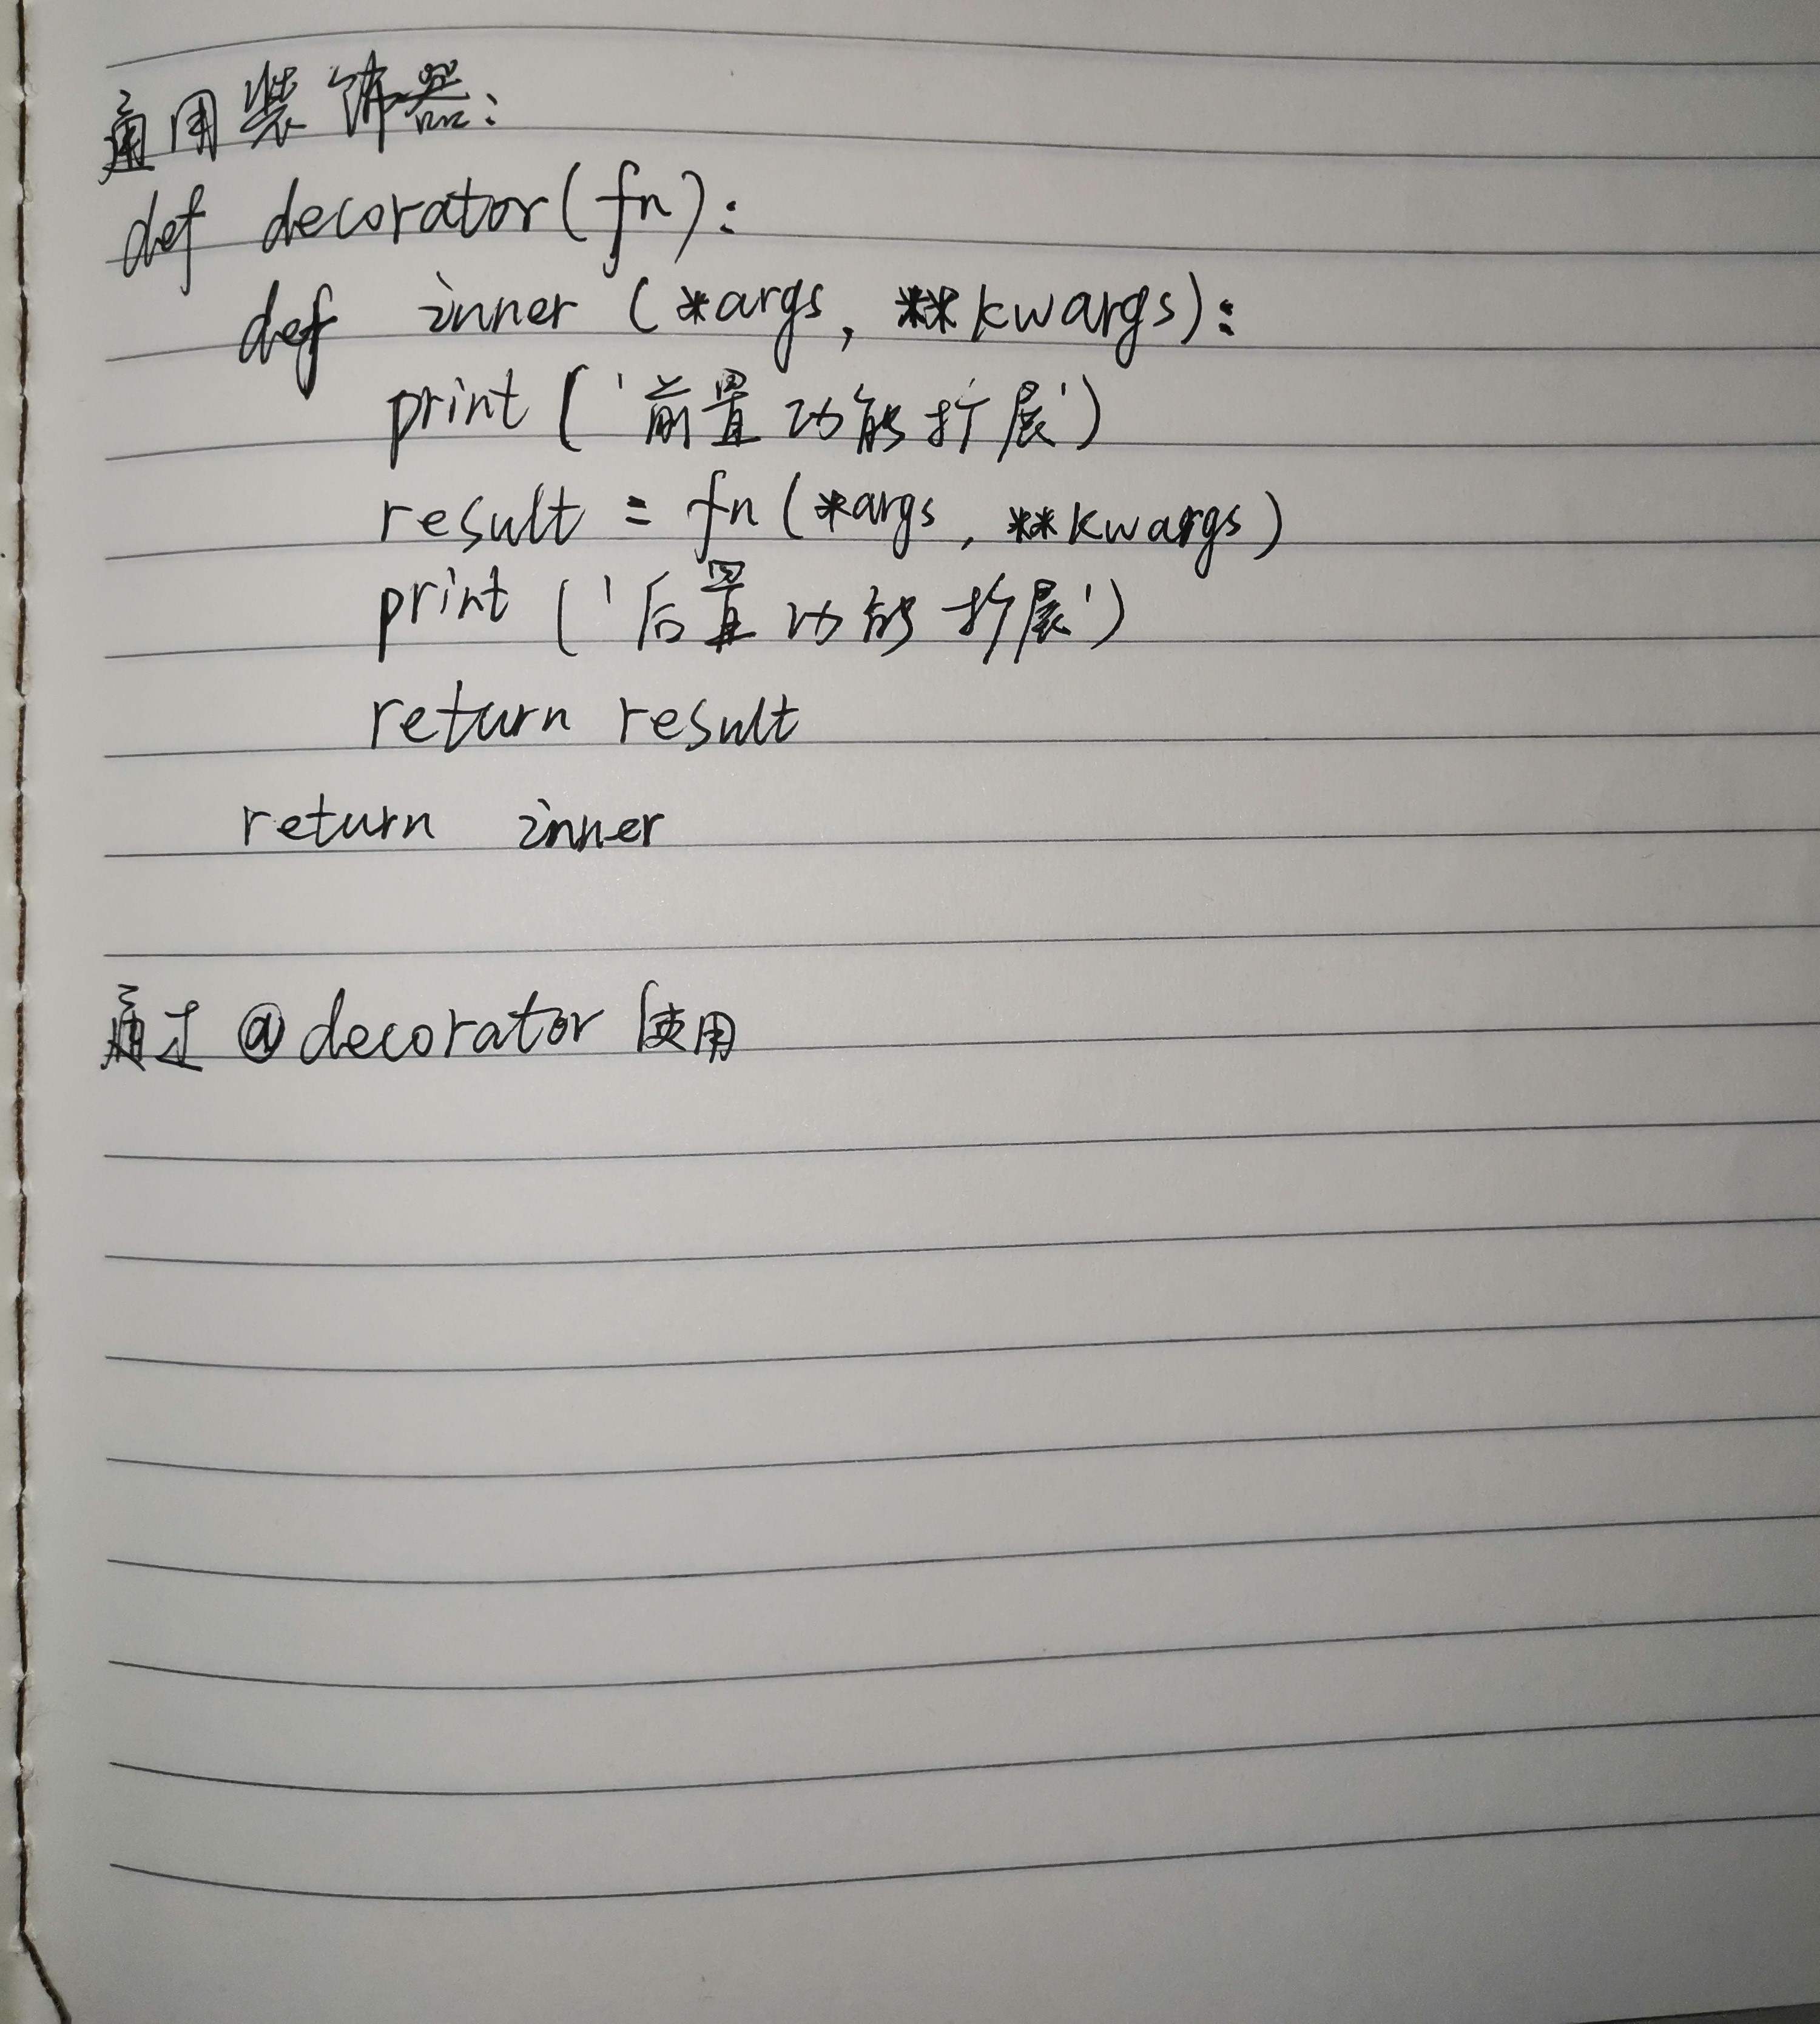 通用装饰器:
def decorator(fn):
    def inner (*args, **kwargs):
        print ('前置功能扩展')
        result = fn(*args, **kwargs)
        print ('后置功能扩展')
        return result
    return inner
通过 @decorator 使用